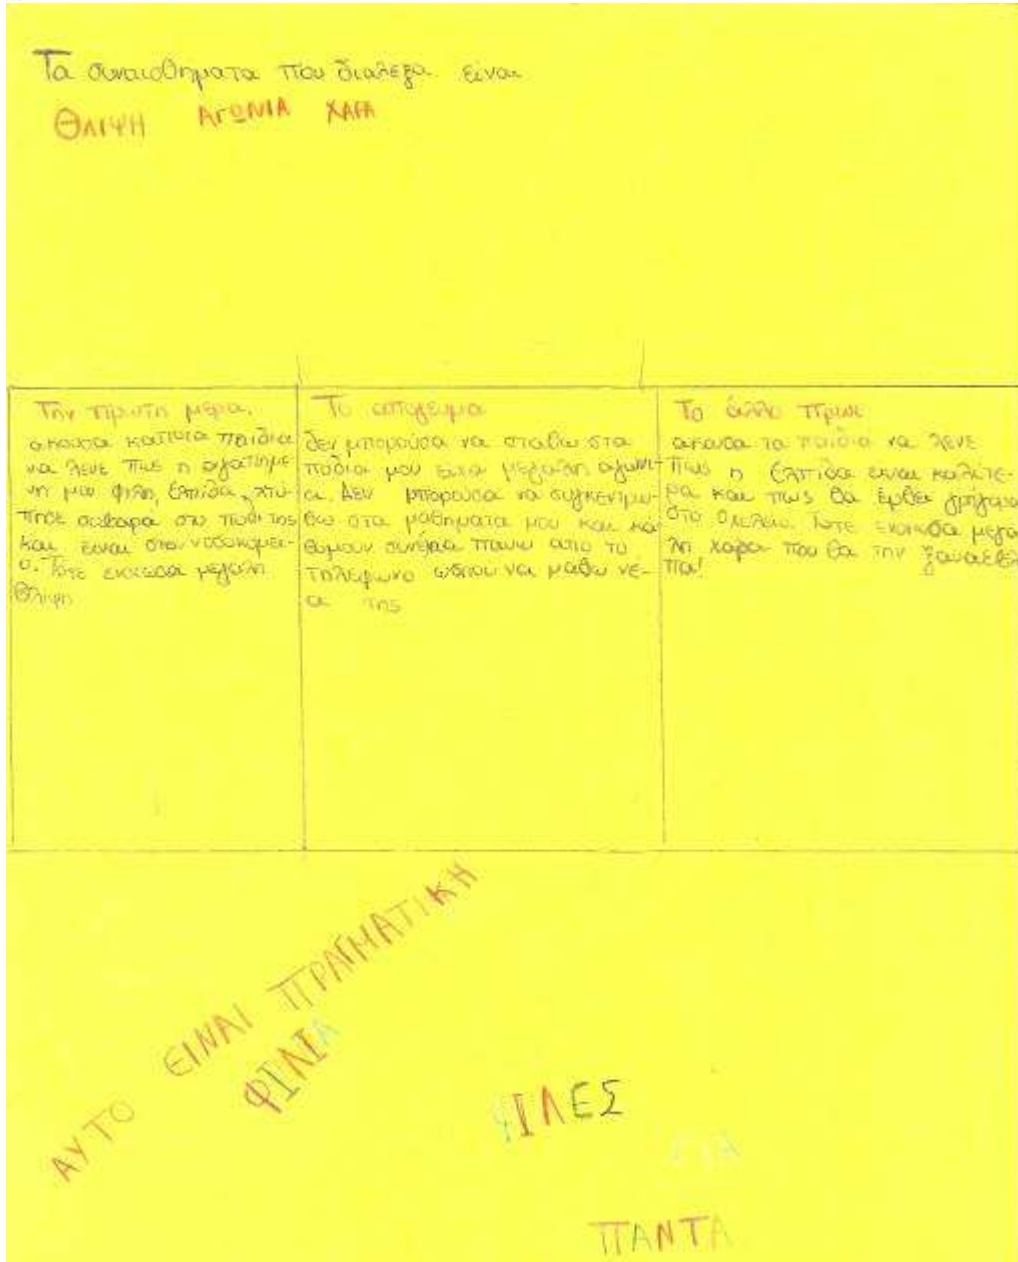 Τα συναισθηματα που διαλεξα είναι
ΘΛΙΨΗ ΑΓΩΝΙΑ ΧΑΡΑ
Την πρωτη μερα,
ακουσα καποια παιδια
να λενε πως η αγαπημε
νη μου φιλη, Ελπιδα, χτυ-
πησε σοβαρα στο ποδι της
και ειναι στο νοσοκομει-
ο. Τοτε ενιωσα μεγαλη
θλιψη
Το απογευμα
δεν μπορούσα να σταθω στα
ποδια μου ειχα μεγαλη αγωνι-
α. Δεν μπορουσα να συγκεντρω-
θω στα μαθηματα μου και κα
θομουν συνεχεια πανω απο το
τηλεφωνο ωσπου να μαθω νε-
α της
Το άλλο πρωι
ακουσα τα παιδιά να λενε
πως η Ελπιδα ειναι καλύτε-
ρα και πως θα έρθει γρήγορα
στο σχολειο. Τοτε ενιωσα μεγα
λη χαρα που θα την ξαναεβλε
πα!
ΑΥΤΟ ΕΙΝΑΙ ΠΡΑΓΜΑΤΙΚΗ
ΦΙΛΙΑ
ΦΙΛΕΣ
ΓΙΑ
ΠΑΝΤΑ